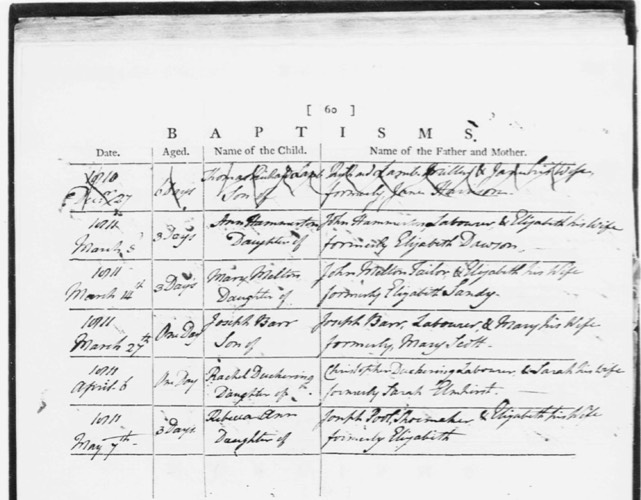 [ 60 ]
B A P T I S M S.
Date. Aged. Name of the Child. Name of the Father and Mother.
Lamb & Jane his Wife
27 6 Days Son of formerly Jane Harrison
1811 Ann Hammerton John Labourer, & Elizabeth his Wife
March 3 Days Daughter of formerly Elizabeth Dawson.
1811 Mary Melton John Melton Tailor, & Elizabeth his Wife
March 14th 3 Days Daughter of formerly Elizabeth Sandy.
1811 Joseph Barr Joseph Barr, Labourer, & Mary his Wife
March 27th One Day Son of formerly, Mary
1811 Rachel Duckering Christopher Duckering Labourer, & Sarah his Wife
April 6 One Day Daughter of formerly Sarah
1811 Rebecca Ann Joseph Shoemaker, & Elizabeth his Wife
May 7th 3 Days Daughter of formerly Elizabeth